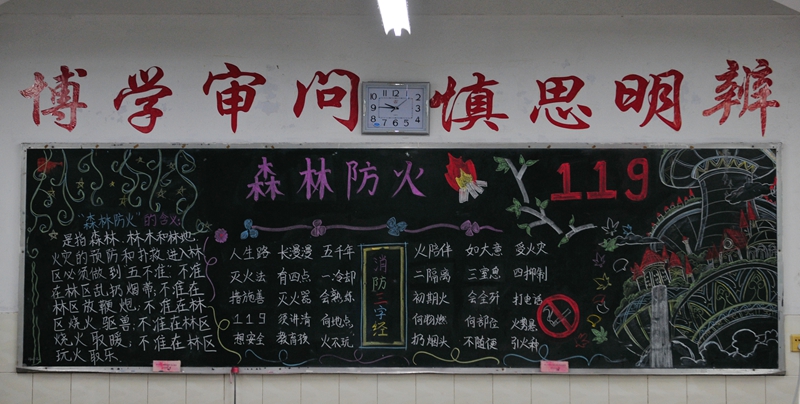 博学审问 慎思明辨
森林防火 119
"森林防火"的含义:
是指森林、林木和林地
火灾的预防和扑救,进入林
区必须做到五不准:不准
在林区乱扔烟蒂,不准在
林区放鞭炮,不准在林
区烧火驱兽,不准在林区
烧火取暖,不准在林区
玩火取乐.
人生路 长漫漫 五千年
灭火法 有四点 一冷却
措施善 灭火器 会熟练
119 须讲清 向地点
想安全 教育孩 火不玩
消防三字经
火陪伴 如大意 受火灾
二隔离 三窒息 四抑制
初期火 会全歼 打电话
何物燃 何部位
扔烟头 不随便 引火种